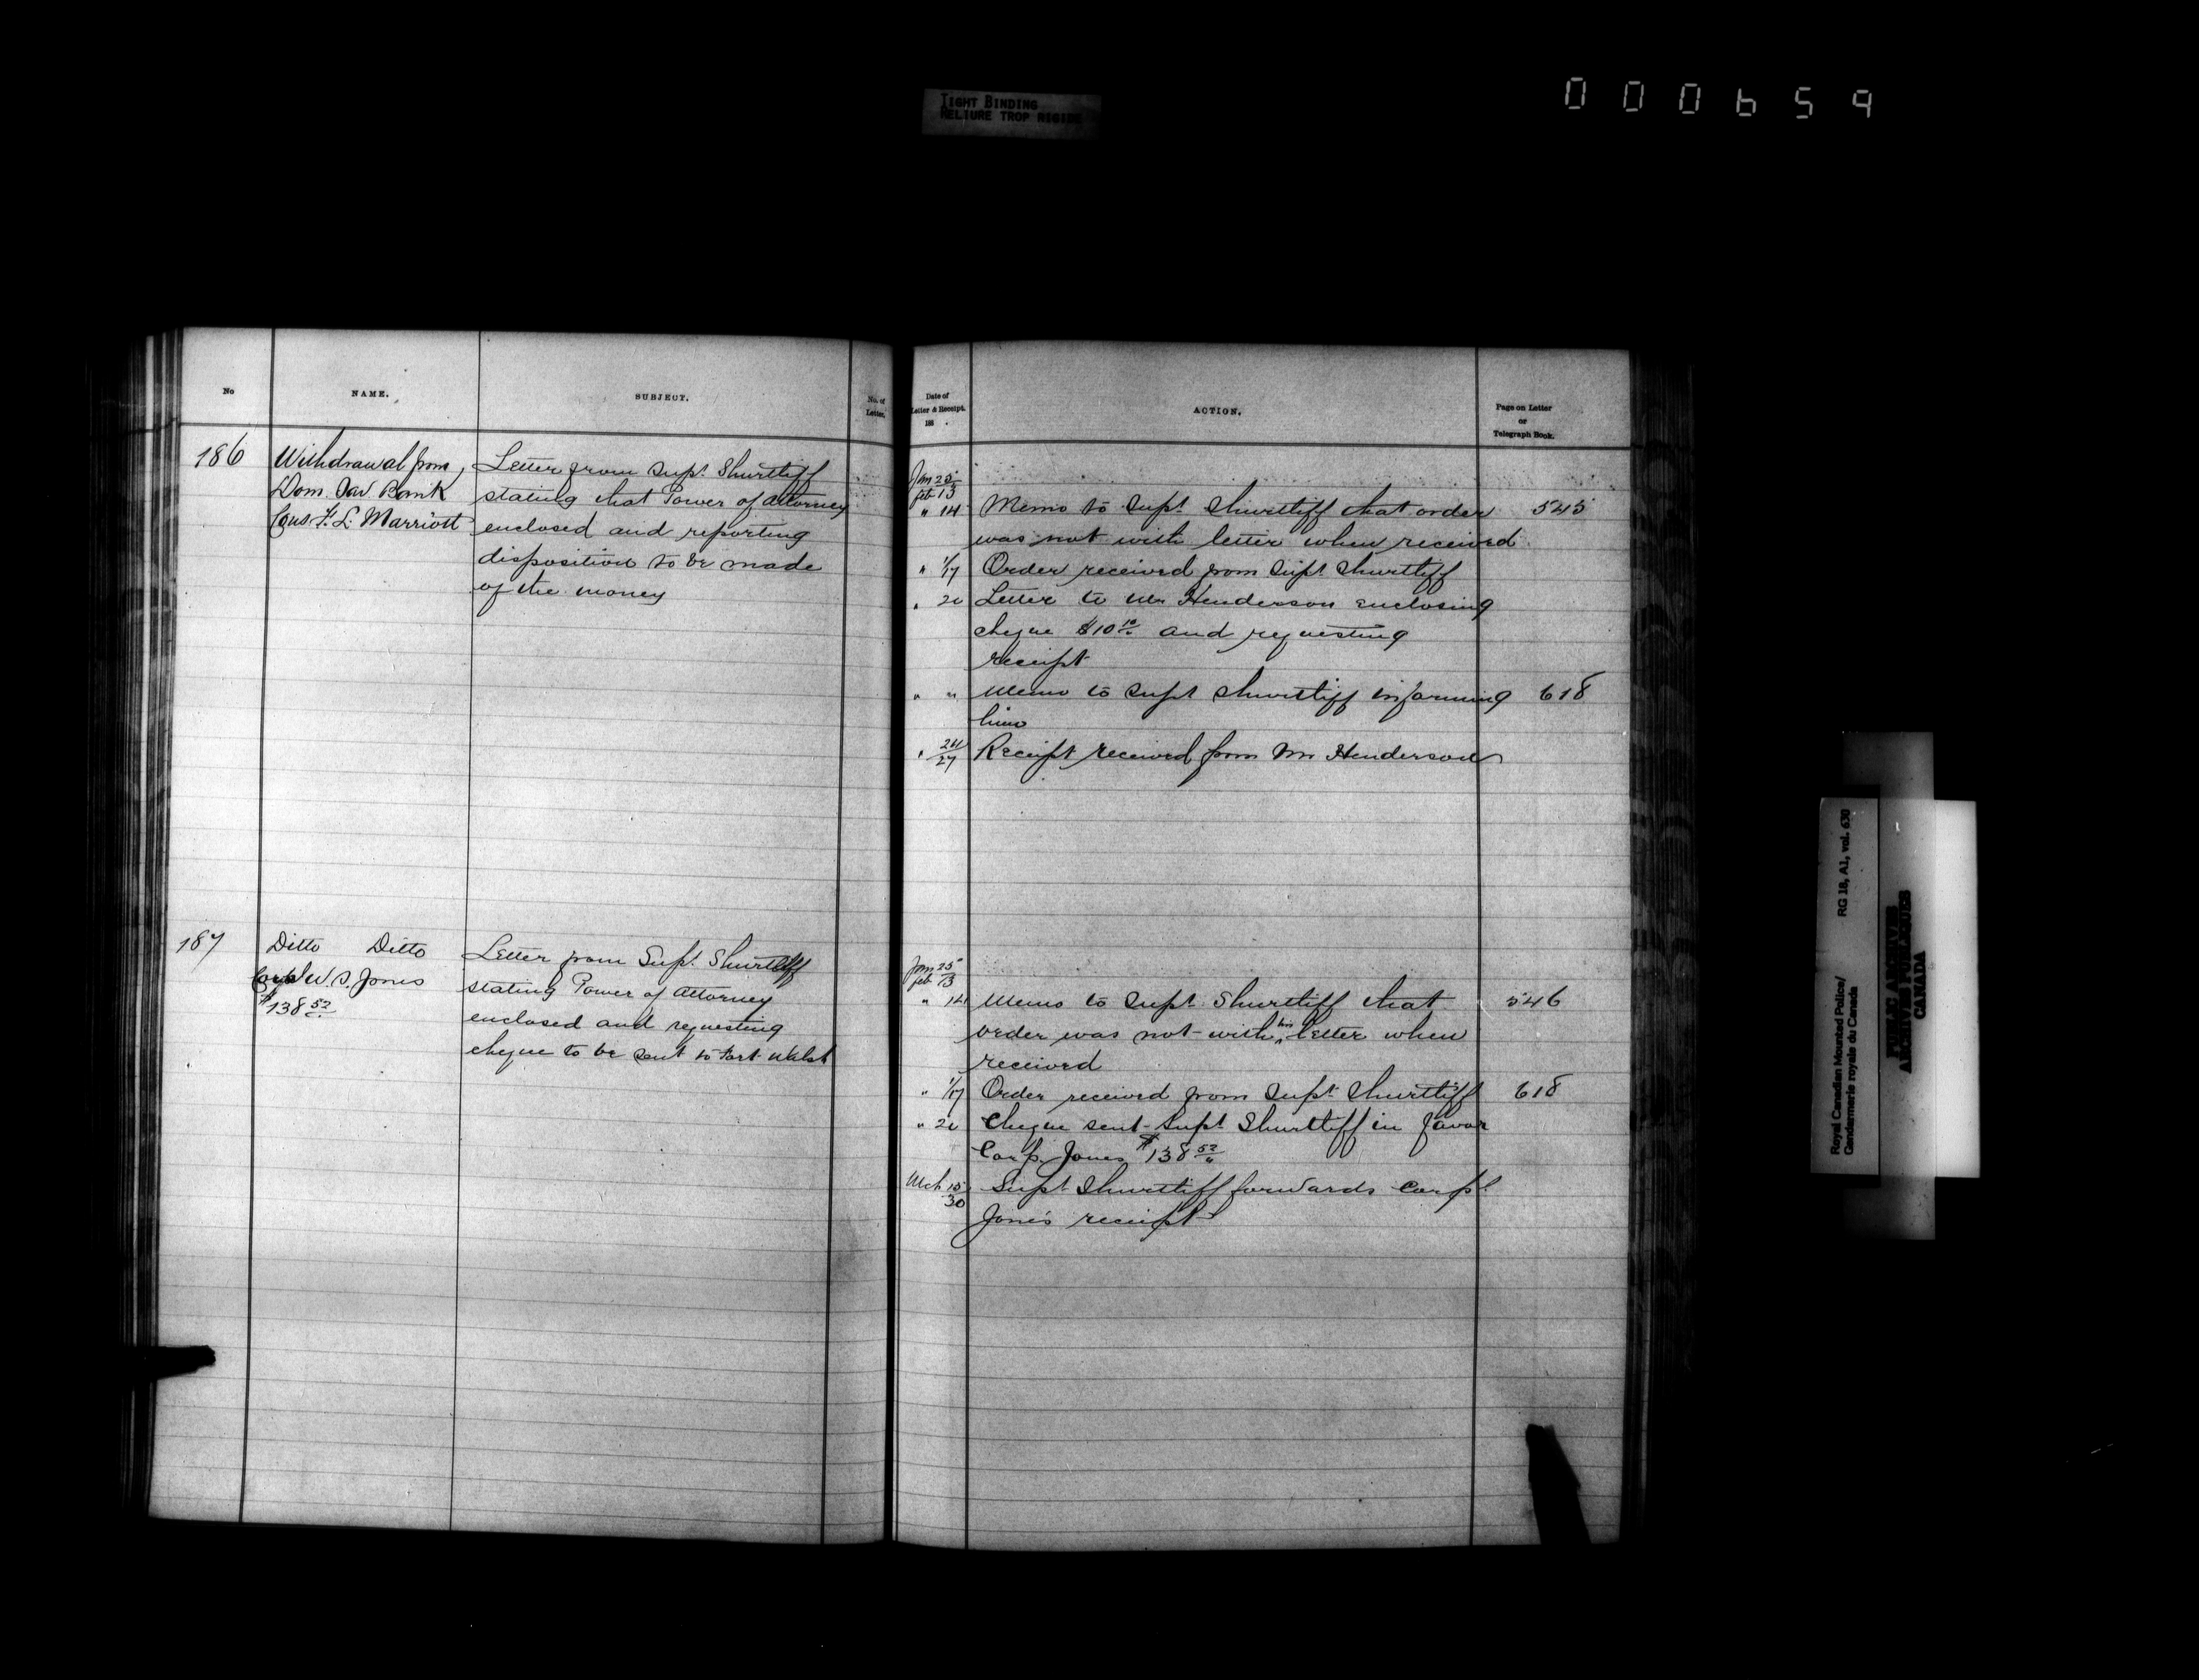 TIGHT BINDING
RELIURE TROP RIGIDE
000659
No
NAME.
SUBJECT.
No. of
Letter.
Date of
Letter & Receipt.
188 .
ACTION.
Page on Letter
or
Telegraph Book.
186
Withdrawal from
Dom. Sav Bank
Cons. F. L. Marriott
Letter from Supt. Shurtliff
stating that Power of Attorney
enclosed and reporting
disposition to be made
of the money
Jan 25
Feb 13
" 14 Memo to Supt. Shurtliff that order 545
was not with letter when received
" 1/17 Order received from Supt Shurtliff
" 20 Letter to Mr Henderson enclosing
cheque $10 10 and requesting
receipt
" " Memo to Supt Shurtliff informing 618
him
" 24/27 Receipt received from Mr Henderson
187
Ditto Ditto
Corpl W. S. Jones
$138 52
Letter from Supt. Shurtliff
stating Power of Attorney
enclosed and requesting
cheque to be sent to Fort Walsh
Jan 25
Feb 13
" 14 Memo to Supt Shurtliff that 546
order was not with his letter when
received
" 1/17 Order received from Supt. Shurtliff 618
" 20 Cheque sent Supt Shurtliff in favor
Corp. Jones $138 52
Mch 15
30 Supt Shurtliff forwards Corpl
Jones receipt
Royal Canadian Mounted Police/
Gendarmerie royale du Canada
RG 18, A1, vol. 630
PUBLIC ARCHIVES
ARCHIVES PUBLIQUES
CANADA